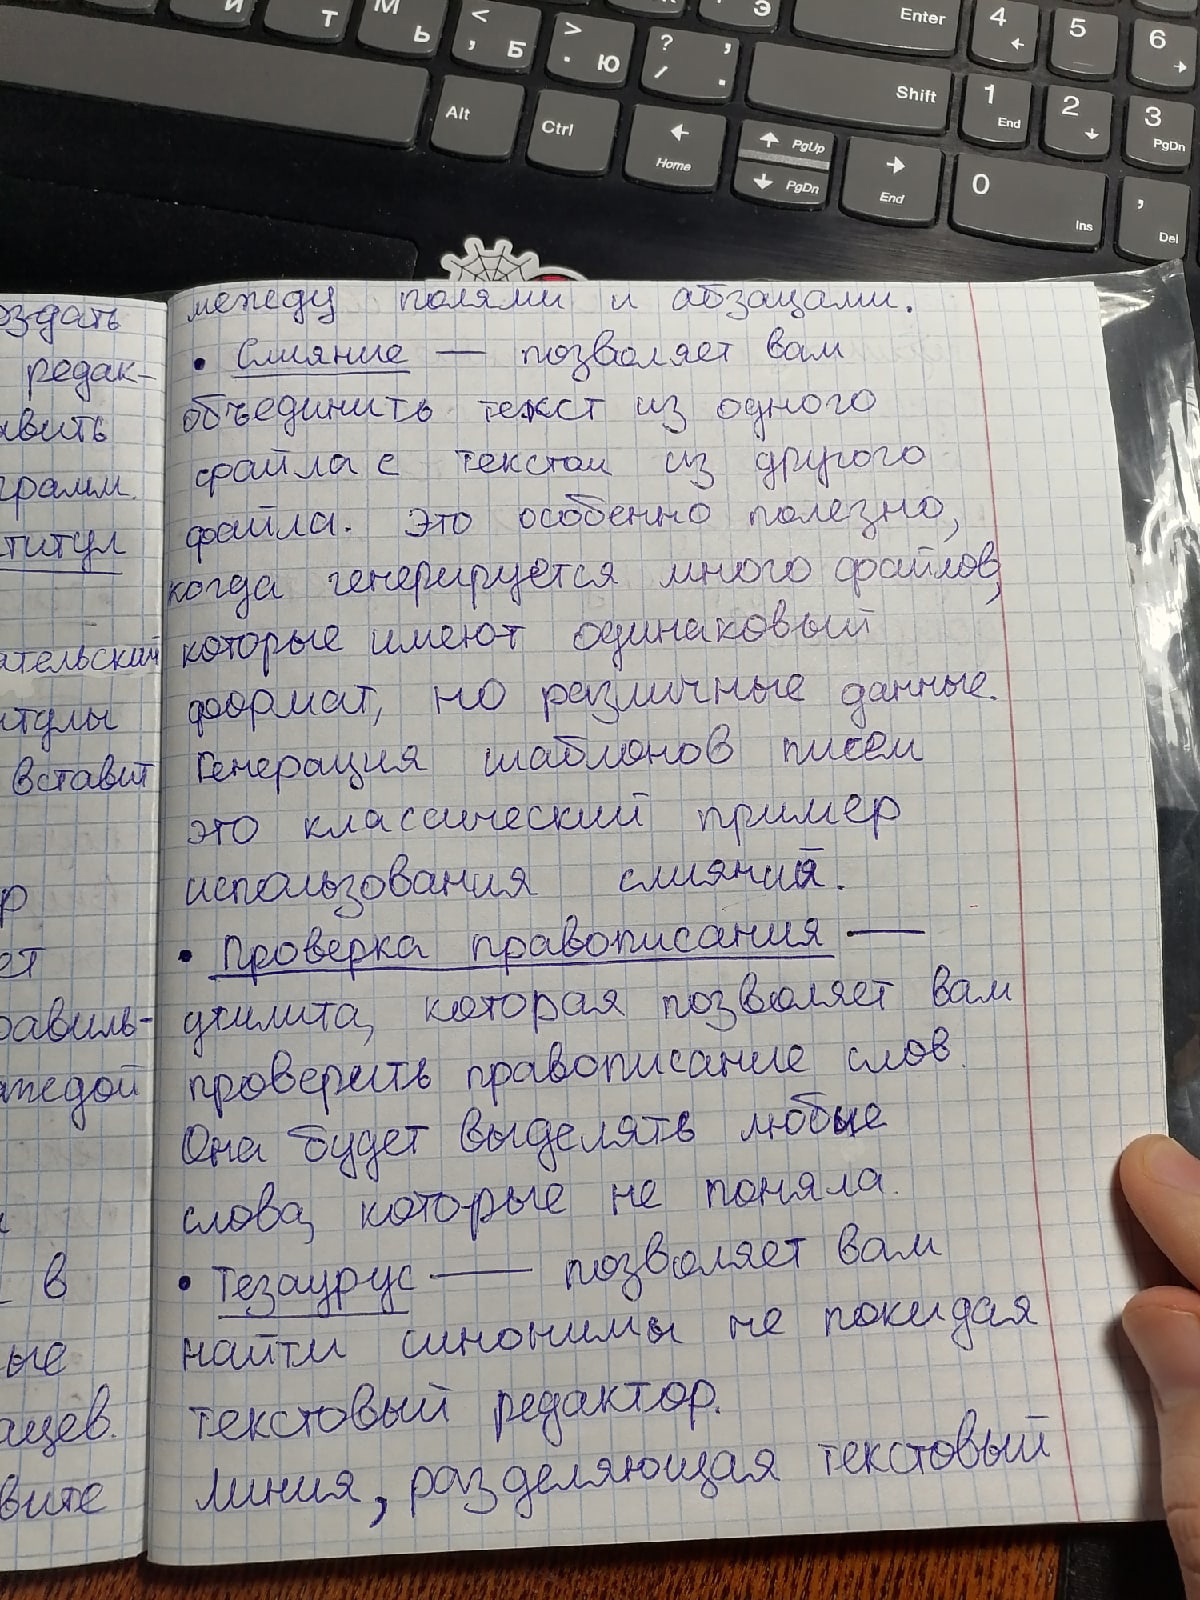 И
Т
М
Ь
<
, Б
>
. Ю
?
/
,
.
Э
Enter
4
5
6
Alt
Ctrl
Shift
1
End
2
3
PgDn
Home
PgUp
PgDn
End
0
Ins
,
Del
оздать
редак-
авить
грамм.
титул
ательский
итулы
вставит
р
ет
равиль-
аждой
в
ые
ацев.
вите
между полями и абзацами.
• Слияние — позволяет вам
объединить текст из одного
файла с текстом из другого
файла. Это особенно полезно,
когда генерируется много файлов,
которые имеют одинаковый
формат, но различные данные.
Генерация шаблонов писем
это классический пример
использования слияния.
• Проверка правописания —
утилита, которая позволяет вам
проверить правописание слов.
Она будет выделять любые
слова, которые не поняла.
• Тезаурус — позволяет вам
найти синонимы не покидая
текстовый редактор.
Линия, разделяющая текстовый